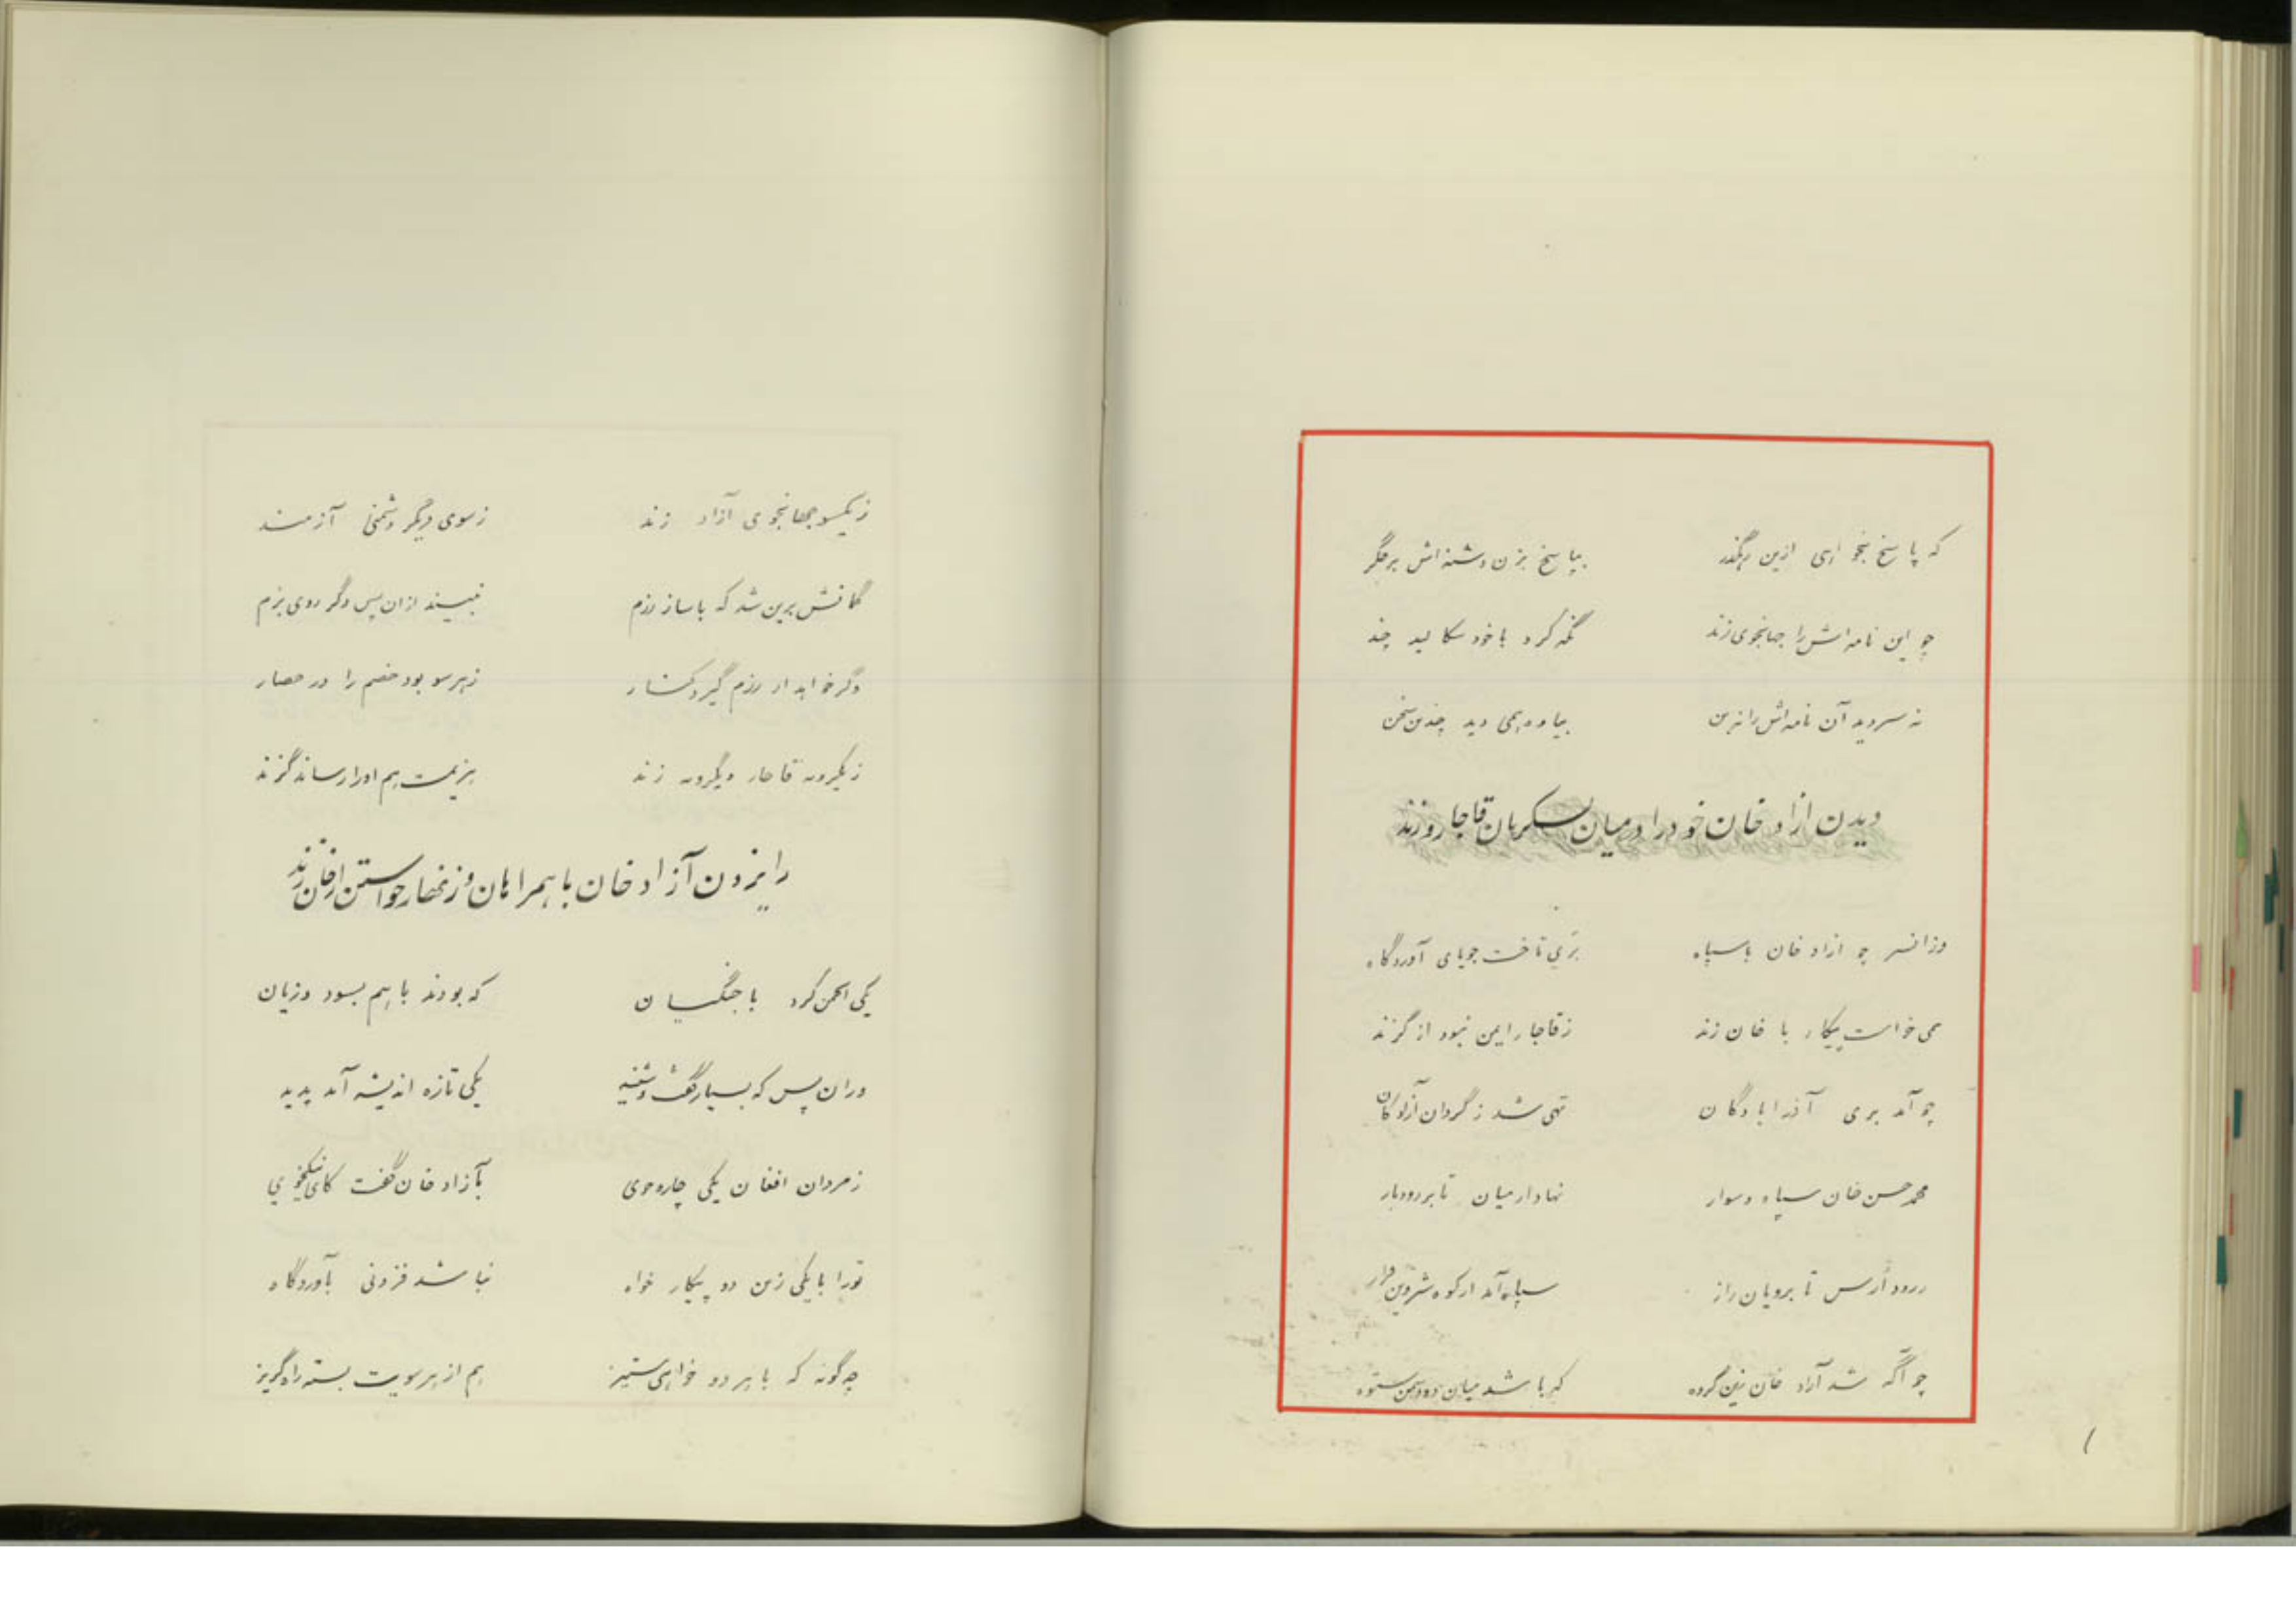 که پاسخ نجواهی ازین رهگذر بپاسخ بزن دشنه‌اش بر جگر
چو این نامه‌اش را جهانجوی زند نگه کرد با خود سکالید چند
نه سر دید آن نامه‌اش را نه بن بیاوه همی دید چندین سخن
دیدن ازاد خان خود را در میان لسکریان قاجار و زند
وزانسر چو ازاد خان با سپاه بری تاخت جویای آوردگاه
می خواست پیکار با خان زند ز قاجار ایمن نبود از گزند
چو آمد بری آذرابادگان تهی شد ز گردان آزادگان
محمد حسن خان سپاه و سوار نهاد از میان تا بر رودبار
ز رود اَرس تا برویان راز سپاه آمد از کوه شروین
چو آگه شد آزاد خان زین گروه که باشد میان دو دشمن ستوه
ز یکسو جهانجوی آزاد زند ز سوی دیگر دشمنی آزمند
گمانش برین شد که با ساز رزم نبیند ازان پس دگر روی بزم
وگر خواهد از رزم گیرد کنار ز هر سو بود خصم را در حصار
ز یکرویه قاجار و یکرویه زند هزیمت هم او را رساند گزند
رایزدن آزاد خان با همراهان و زنهار خواستن از خان زند
یکی انجمن کرد با جنگیان که بودند با هم بسود و زیان
وران پس که بسیار گفت و شنید یکی تازه اندیشه آمد پدید
ز مردان افغان یکی چاره جوی بآزاد خان گفت کای نیکخوی
تورا با یکی زین دو پیکار خواه نباشد فزونی بآوردگاه
چه گونه که با هر دو خواهی ستیز هم از هر سویت بسته راه گریز